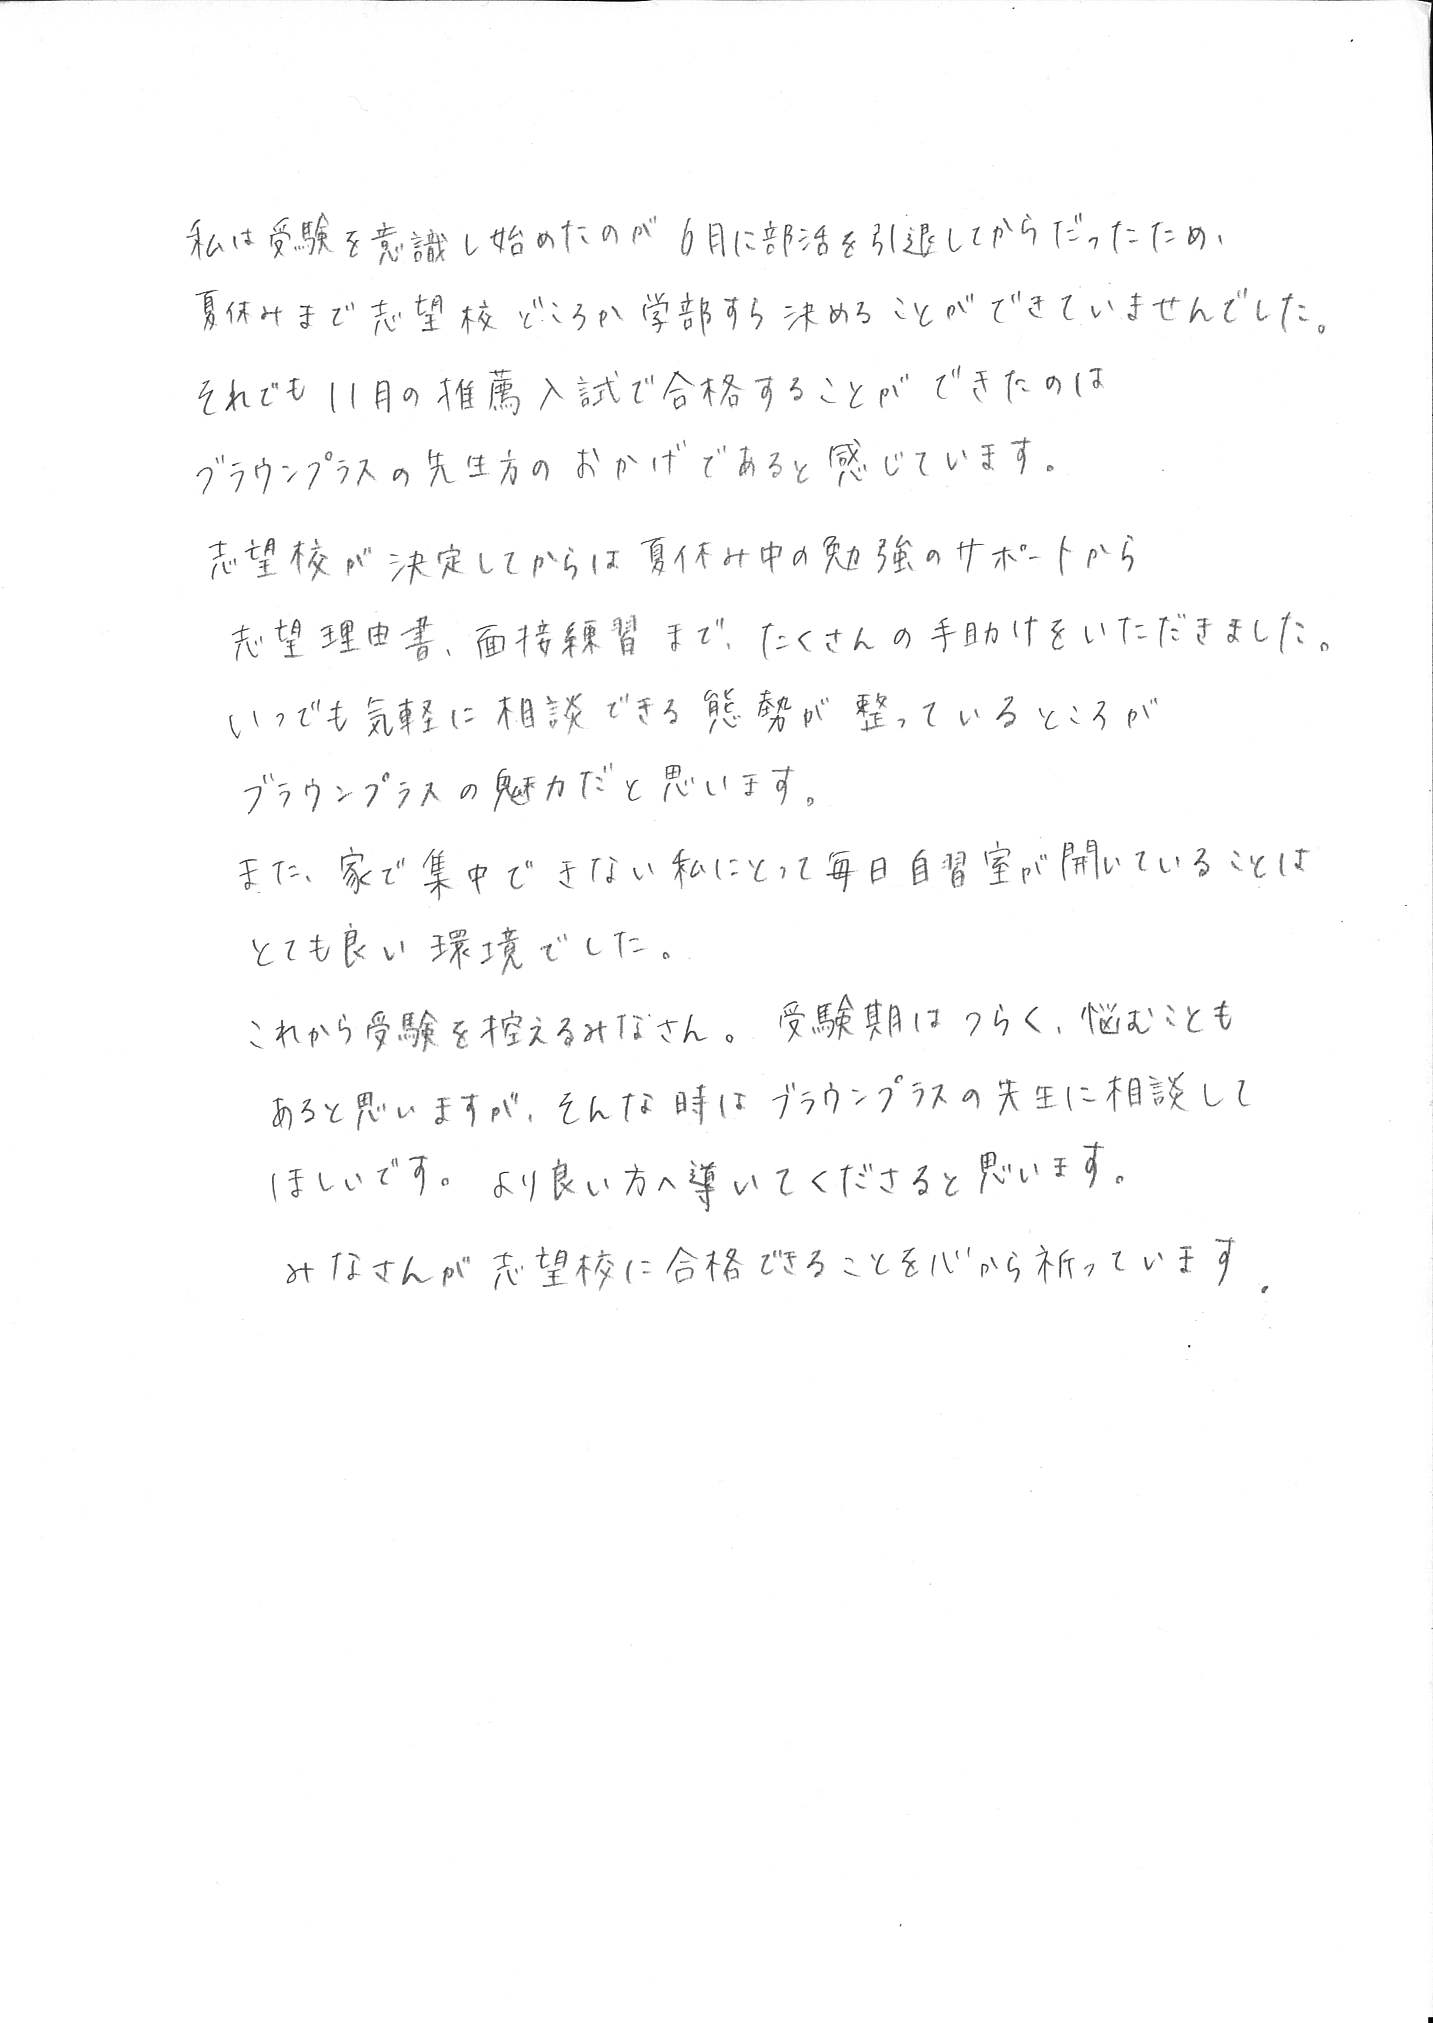 私は受験を意識し始めたのが6月に部活を引退してからだったため、
夏休みまで志望校どころか学部すら決めることができていませんでした。
それでも11月の推薦入試で合格することができたのは
ブラウンプラスの先生方のおかげであると感じています。
志望校が決定してからは夏休み中の勉強のサポートから
志望理由書、面接練習まで、たくさんの手助けをいただきました。
いつでも気軽に相談できる態勢が整っているところが
ブラウンプラスの魅力だと思います。
また、家で集中できない私にとって毎日自習室が開いていることは
とても良い環境でした。
これから受験を控えるみなさん。受験期はつらく、悩むことも
あると思いますが、そんな時はブラウンプラスの先生に相談して
ほしいです。より良い方へ導いてくださると思います。
みなさんが志望校に合格できることを心から祈っています.